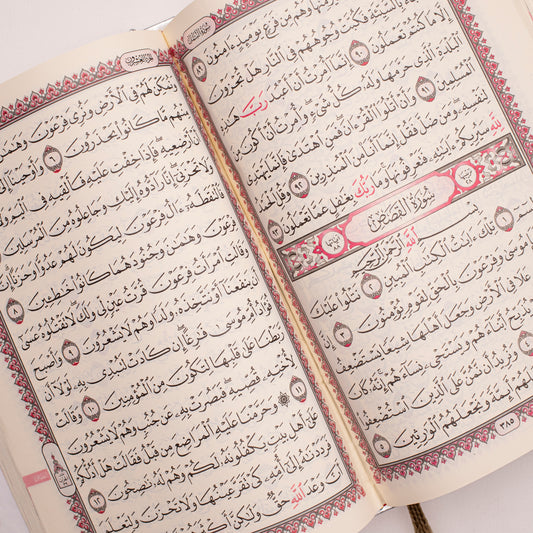 سُورَةُ النَّمْلِ
مِّنْهَا وَهُم مِّن فَزَعٍ يَوْمَئِذٍ ءَامِنُونَ ٨٩
بِالسَّيِّئَةِ فَكُبَّتْ وُجُوهُهُمْ فِي النَّارِ هَلْ تُجْزَوْنَ
إِلَّا مَا كُنتُمْ تَعْمَلُونَ ٩٠ إِنَّمَا أُمِرْتُ أَنْ أَعْبُدَ رَبَّ هَٰذِهِ
الْبَلْدَةِ الَّذِي حَرَّمَهَا وَلَهُ كُلُّ شَيْءٍ وَأُمِرْتُ أَنْ أَكُونَ مِنَ
الْمُسْلِمِينَ ٩١ وَأَنْ أَتْلُوَا الْقُرْءَانَ فَمَنِ اهْتَدَىٰ فَإِنَّمَا يَهْتَدِي
لِنَفْسِهِ وَمَن ضَلَّ فَقُلْ إِنَّمَا أَنَا مِنَ الْمُنذِرِينَ ٩٢ وَقُلِ الْحَمْدُ
لِلَّهِ سَيُرِيكُمْ ءَايَٰتِهِ فَتَعْرِفُونَهَا وَمَا رَبُّكَ بِغَٰفِلٍ عَمَّا تَعْمَلُونَ ٩٣
سُورَةُ الْقَصَصِ
بِسْمِ اللَّهِ الرَّحْمَٰنِ الرَّحِيمِ
١ تِلْكَ ءَايَٰتُ الْكِتَٰبِ الْمُبِينِ ٢ نَتْلُوا عَلَيْكَ
مُوسَىٰ وَفِرْعَوْنَ بِالْحَقِّ لِقَوْمٍ يُؤْمِنُونَ ٣
عَلَا فِي الْأَرْضِ وَجَعَلَ أَهْلَهَا شِيَعًا يَسْتَضْعِفُ
يُذَبِّحُ أَبْنَاءَهُمْ وَيَسْتَحْيِ نِسَاءَهُمْ إِنَّهُ كَانَ
٤ وَنُرِيدُ أَن نَّمُنَّ عَلَى الَّذِينَ اسْتُضْعِفُوا
وَنَجْعَلَهُمْ أَئِمَّةً وَنَجْعَلَهُمُ الْوَٰرِثِينَ ٥
٣٨٥
الْجُزْءُ الْعِشْرُونَ
وَنُمَكِّنَ لَهُمْ فِي الْأَرْضِ وَنُرِيَ فِرْعَوْنَ وَهَٰمَٰنَ
مِنْهُم مَّا كَانُوا يَحْذَرُونَ ٦ وَأَوْحَيْنَا
أَنْ أَرْضِعِيهِ فَإِذَا خِفْتِ عَلَيْهِ فَأَلْقِيهِ فِي الْيَمِّ وَلَا
وَلَا تَحْزَنِي إِنَّا رَادُّوهُ إِلَيْكِ وَجَاعِلُوهُ مِنَ الْمُرْسَلِينَ
فَالْتَقَطَهُ ءَالُ فِرْعَوْنَ لِيَكُونَ لَهُمْ عَدُوًّا وَحَزَنًا إِنَّ
فِرْعَوْنَ وَهَٰمَٰنَ وَجُنُودَهُمَا كَانُوا خَٰطِـِٔينَ ٨
وَقَالَتِ امْرَأَتُ فِرْعَوْنَ قُرَّتُ عَيْنٍ لِّي وَلَكَ لَا تَقْتُلُوهُ عَسَىٰ
يَنفَعَنَا أَوْ نَتَّخِذَهُ وَلَدًا وَهُمْ لَا يَشْعُرُونَ ٩ وَأَصْبَحَ
فُؤَادُ أُمِّ مُوسَىٰ فَٰرِغًا إِن كَادَتْ لَتُبْدِي بِهِ لَوْلَا أَن
رَّبَطْنَا عَلَىٰ قَلْبِهَا لِتَكُونَ مِنَ الْمُؤْمِنِينَ ١٠ وَقَالَتْ
لِأُخْتِهِ قُصِّيهِ فَبَصُرَتْ بِهِ عَن جُنُبٍ وَهُمْ لَا يَشْعُرُونَ
١١ وَحَرَّمْنَا عَلَيْهِ الْمَرَاضِعَ مِن قَبْلُ فَقَالَتْ هَلْ أَدُلُّكُمْ
عَلَىٰ أَهْلِ بَيْتٍ يَكْفُلُونَهُ لَكُمْ وَهُمْ لَهُ نَٰصِحُونَ ١٢
فَرَدَدْنَٰهُ إِلَىٰ أُمِّهِ كَيْ تَقَرَّ عَيْنُهَا وَلَا تَحْزَنَ وَلِتَعْلَمَ
أَنَّ وَعْدَ اللَّهِ حَقٌّ وَلَٰكِنَّ